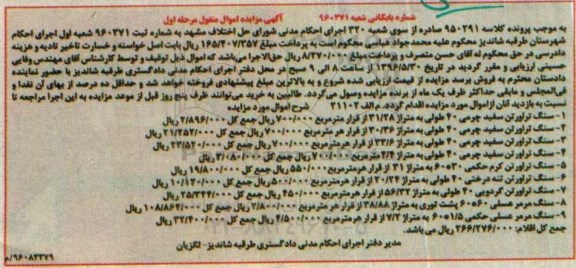 شماره بایگانی شعبه ۹۶۰۳۷۱
آگهی مزایده اموال منقول مرحله اول
به موجب پرونده کلاسه ۹۵۰۲۹۱ صادره از سوی شعبه ۳۲۰ اجرای احکام مدنی شورای حل اختلاف مشهد به شماره ثبت ۹۶۰۳۷۱ شعبه اول اجرای احکام
شهرستان طرقبه شاندیز محکوم علیه محمدجواد عباسی محکوم است به پرداخت مبلغ ۱۶۵/۴۰۷/۳۵۷ ریال بابت اصل خواسته و خسارت تاخیر تادیه و هزینه
دادرسی در حق محکوم له آقای حسن متصرف و پرداخت مبلغ ۸/۲۷۰/۰۰۰ ریال حق‌الاجرا می‌باشد که اموال ذیل توقیف و توسط کارشناس آقای مهندس وفایی
حسینی ارزیابی و مقرر گردید در تاریخ ۱۳۹۶/۵/۳۰ از ساعت ۸ الی ۹ صبح در محل دفتر اجرای احکام مدنی دادگستری طرقبه شاندیز با حضور نماینده
دادستان محترم به فروش برسد مزایده از قیمت ارزیابی شده شروع و به بالاترین مبلغ پیشنهادی فروخته خواهد شد و حداقل ده درصد از بهای آن نقدا و
فی‌المجلس و مابقی حداکثر ظرف یک ماه از برنده مزایده وصول می‌گردد. طالبین به خرید می‌توانند ظرف پنج روز قبل از موعد مزایده به این اجرا مراجعه تا
نسبت به بازدید آنان از اموال مورد مزایده اقدام گردد. م الف ۲۱۱۰۲ شرح اموال مورد مزایده
۱- سنگ تراورتن سفید چرمی ۴۰ طولی به متراژ ۳۱/۲۸ از قرار هر مترمربع ۷۰۰/۰۰۰ ریال جمع کل ۲/۸۹۶/۰۰۰ ریال
۲- سنگ تراورتن سفید چرمی ۴۰ طولی به متراژ ۳۰/۳۶ از قرار هر مترمربع ۷۰۰/۰۰۰ ریال جمع کل ۲۱/۲۵۲/۰۰۰ ریال
۳- سنگ تراورتن سفید چرمی ۴۰ طولی به متراژ ۳۳/۶ از قرار هر مترمربع ۷۰۰/۰۰۰ ریال جمع کل ۲۳/۵۲۰/۰۰۰ ریال
۴- سنگ تراورتن سفید چرمی ۴۰ طولی به متراژ ۴/۴ از قرار هر مترمربع ۷۰۰/۰۰۰ ریال جمع کل ۳/۰۸۰/۰۰۰ ریال
۵- سنگ تراورتن کرم حکمی ۳۰*۶۰ به متراژ ۳۱ از قرار هر مترمربع ۵۵۰/۰۰۰ ریال جمع کل ۱۹/۸۰۰/۰۰۰ ریال
۶- سنگ تراورتن تنه درختی ۴۰ طولی به متراژ ۲۰/۲۴ از قرار هر مترمربع ۵۰۰/۰۰۰ ریال جمع کل ۱۰/۱۲۰/۰۰۰ ریال
۷- سنگ تراورتن گردویی ۴۰ طولی به متراژ ۵۶/۳۲ از قرار هر مترمربع ۴۵۰/۰۰۰ ریال جمع کل ۲۵/۳۴۴/۰۰۰ ریال
۸- سنگ مرمر عسلی ۶۰*۶۰ پشت توری به متراژ ۳۸/۸۸ از قرار هر مترمربع ۲/۸۰۰/۰۰۰ ریال جمع کل ۱۰۸/۸۶۴/۰۰۰ ریال
۹- سنگ مرمر عسلی حکمی ۱/۵*۶۰ به متراژ ۷/۲ از قرار هر مترمربع ۴/۵۰۰/۰۰۰ ریال جمع کل ۳۲/۴۰۰/۰۰۰ ریال
جمع کل اقلام: ۲۶۶/۲۷۶/۰۰۰ ریال می باشد.
مدیر دفتر اجرای احکام مدنی دادگستری طرقبه شاندیز - لگزیان
۹۶۰۸۳۳۷۹/م